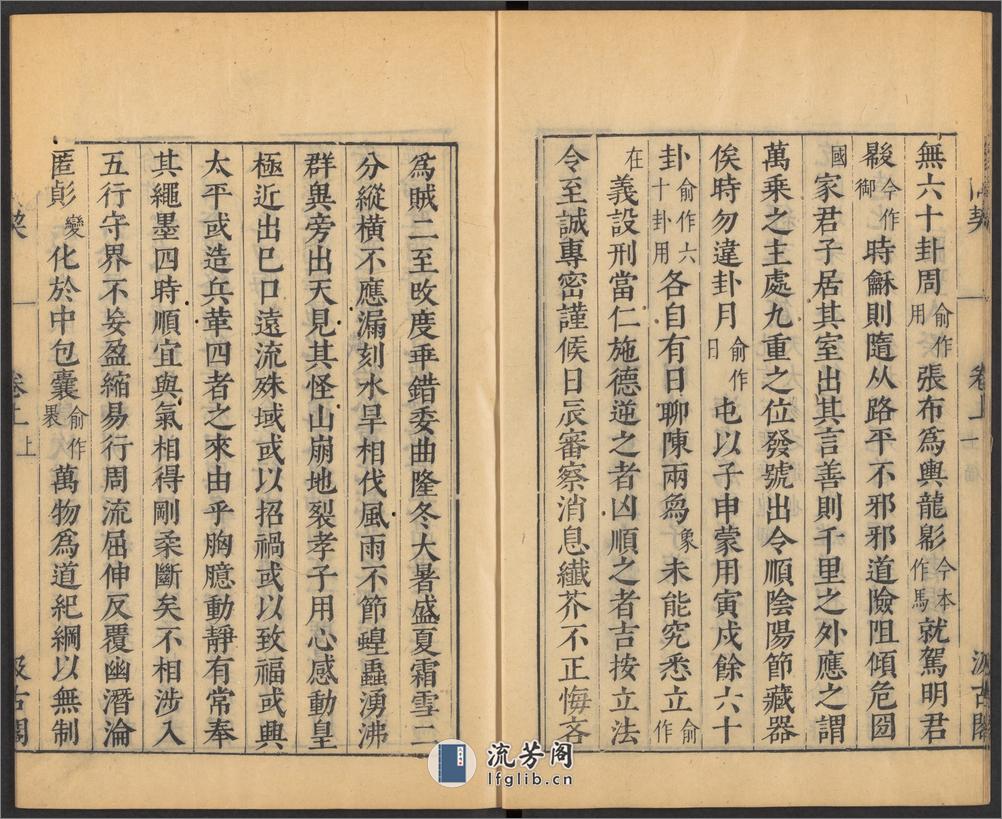 契
卷上
汲古閣
無六十卦周俞作用張布爲輿龍今本作馬就駕明君
今作御時龢則隨从路平不邪邪道險阻傾危圀
國家君子居其室出其言善則千里之外應之謂
萬乘之主處九重之位發號出令順陰陽節藏器
俟時勿違卦月俞作日屯以子申蒙用寅戌餘六十
卦俞作六十卦用各自有日聊陳兩象未能究悉立俞作
在義設刑當仁施德逆之者凶順之者吉按立法
令至誠專密謹候日辰審察消息纖芥不正悔吝
爲賊二至改度乖錯委曲隆冬大暑盛夏霜雪二
分縱橫不應漏刻水旱相代風雨不節蝗蟲湧沸
群異旁出天見其怪山崩地裂孝子用心感動皇
極近出己口遠流殊域或以招禍或以致福或興
太平或造兵革四者之來由乎胸臆動靜有常奉
其繩墨四時順宜與氣相得剛柔斷矣不相涉入
五行守界不妄盈縮易行周流屈伸反覆幽潛淪
匿變化於中包囊俞作裹萬物爲道紀綱以無制
契
卷上
上
汲古閣
流芳阁
lfglib.cn